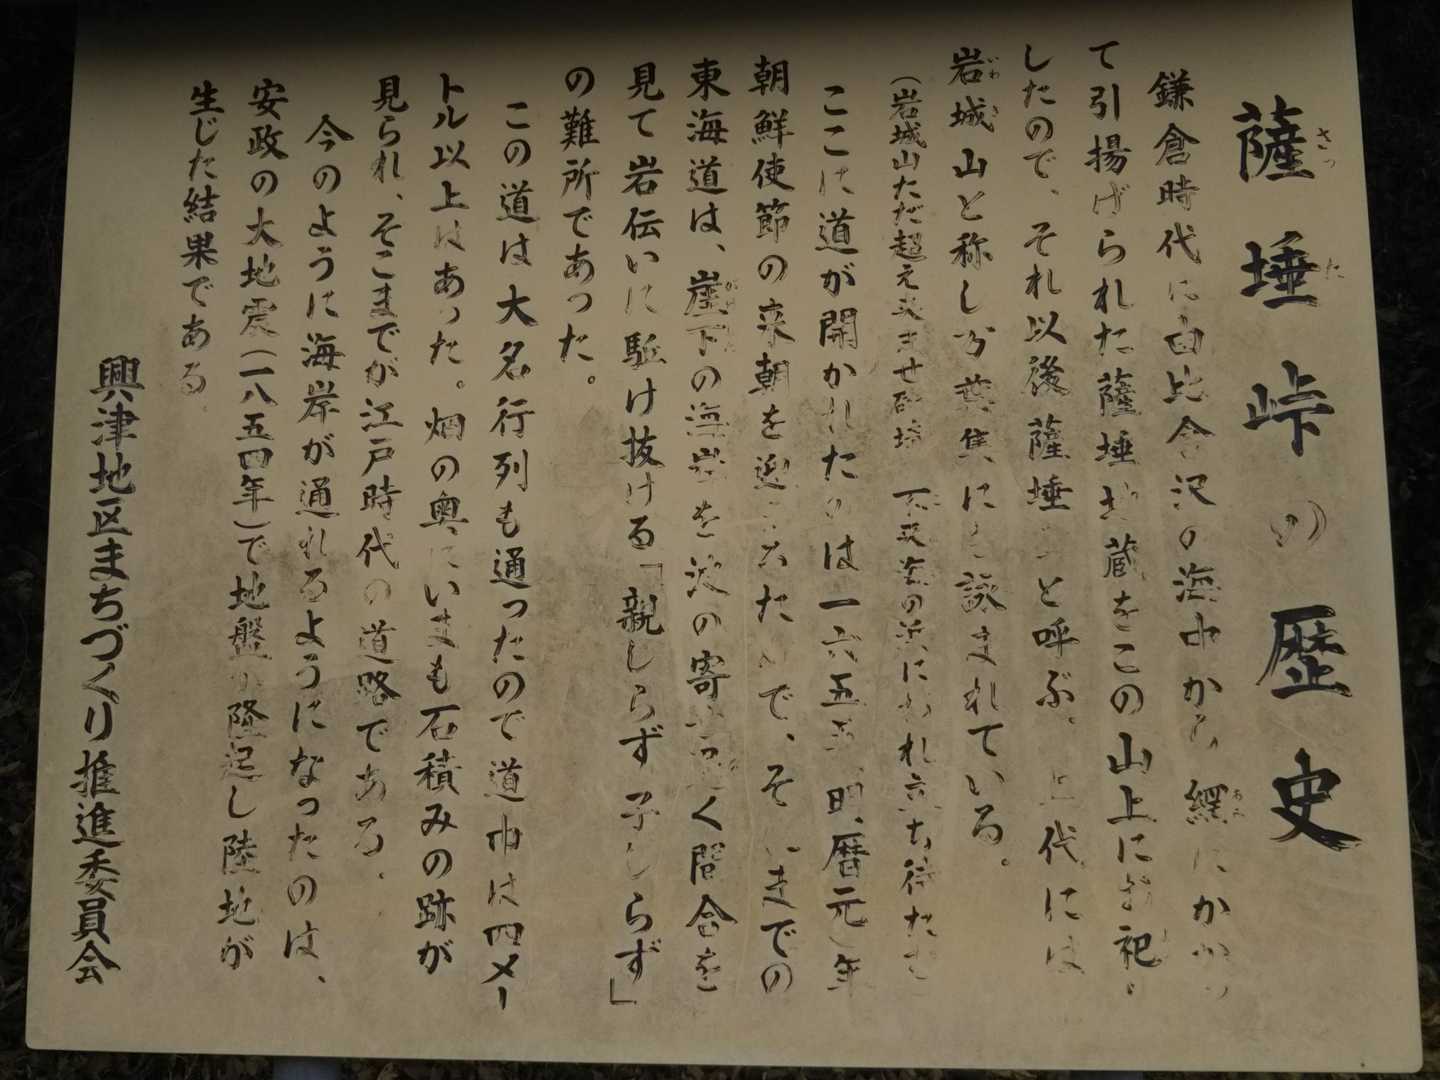 薩埵峠の歴史
鎌倉時代に由比倉沢の海中から網にかかっ
て引揚げられた薩埵地蔵をこの山上にお祀り
したので、それ以後薩埵山と呼ぶ。上代には
岩城山と称し万葉集にも詠まれている。
(岩城山ただ超え来ませ磯埼 不来海の浜にわれ立ち待たむ
ここに道が開かれたのは一六五五(明暦元)年
朝鮮使節の来朝を迎えたので、それまでの
東海道は、崖下の海岸を波の寄せく間合を
見て岩伝いに駈け抜ける「親しらず子しらず」
の難所であった。
この道は大名行列も通ったので道巾は四メー
トル以上はあった。畑の奥にいまも石積みの跡が
見られ、そこまでが江戸時代の道路である。
今のように海岸が通れるようになったのは、
安政の大地震(一八五四年)で地盤が隆起し陸地が
生じた結果である
興津地区まちづくり推進委員会